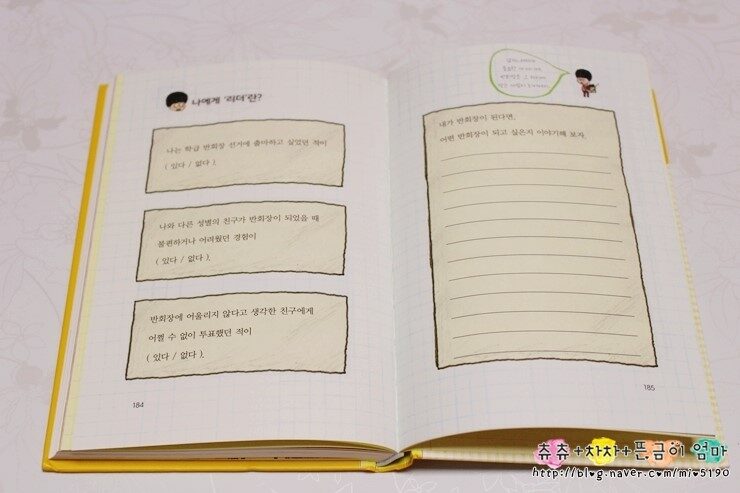 나에게 '리더'란?
나는 학급 반회장 선거에 출마하고 싶었던 적이
( 있다 / 없다 ).
나와 다른 성별의 친구가 반회장이 되었을 때
불편하거나 어려웠던 경험이
( 있다 / 없다 ).
반회장에 어울리지 않다고 생각한 친구에게
어쩔 수 없이 투표했던 적이
( 있다 / 없다 ).
184
내가 반회장이 된다면,
어떤 반회장이 되고 싶은지 이야기해 보자.
185
츄츄+차차+뜬금이 엄마
http://blog.naver.com/mi♥5190